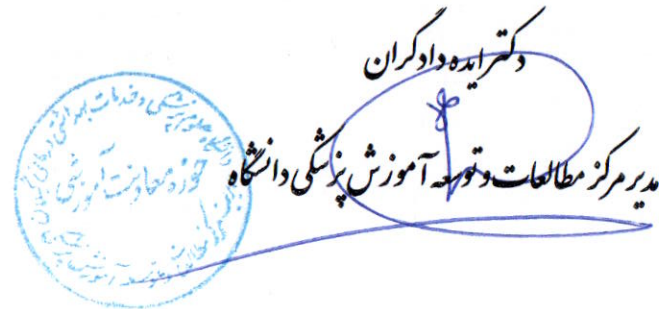 دکتر ایده دادگران
مدیر مرکز مطالعات و توسعه آموزش پزشکی دانشگاه
دانشگاه علوم پزشکی و خدمات بهداشتی درمانی گیلان
حوزه معاونت آموزشی
مرکز مطالعات و توسعه آموزش پزشکی